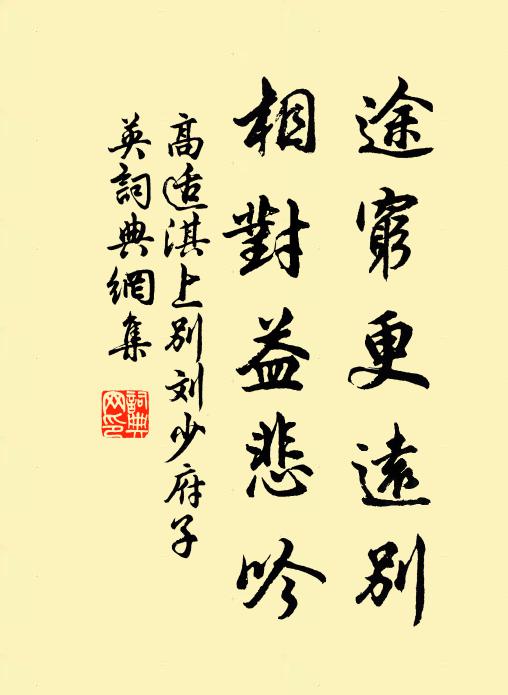 途窮更遠別
相對益悲吟
高适淇上別刘少府子
英詞典網集
詞典
网印